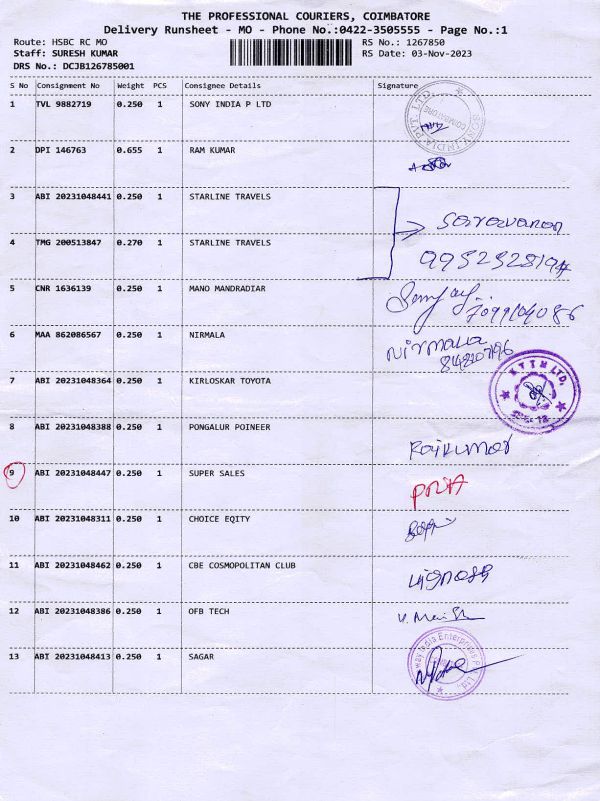 THE PROFESSIONAL COURIERS, COIMBATORE
Delivery Runsheet - MO - Phone No.:0422-3505555 - Page No.:1
Route: HSBC RC MO RS No.: 1267850
Staff: SURESH KUMAR RS Date: 03-Nov-2023
DRS No.: DCJB126785001
S No Consignment No Weight PCS Consignee Details Signature
1 TVL 9882719 0.250 1 SONY INDIA P LTD
SONY INDIA PVT LTD
COIMBATORE
2 DPI 146763 0.655 1 RAM KUMAR
3 ABI 20231048441 0.250 1 STARLINE TRAVELS
Saravanan
4 TMG 200513847 0.270 1 STARLINE TRAVELS
5 CNR 1636139 0.250 1 MANO MANDRADIAR
6 MAA 862086567 0.250 1 NIRMALA Nirmala
7 ABI 20231048364 0.250 1 KIRLOSKAR TOYOTA
8 ABI 20231048388 0.250 1 PONGALUR POINEER Rajkumar
9 ABI 20231048447 0.250 1 SUPER SALES
10 ABI 20231048311 0.250 1 CHOICE EQITY
11 ABI 20231048462 0.250 1 CBE COSMOPOLITAN CLUB
12 ABI 20231048386 0.250 1 OFB TECH
13 ABI 20231048413 0.250 1 SAGAR